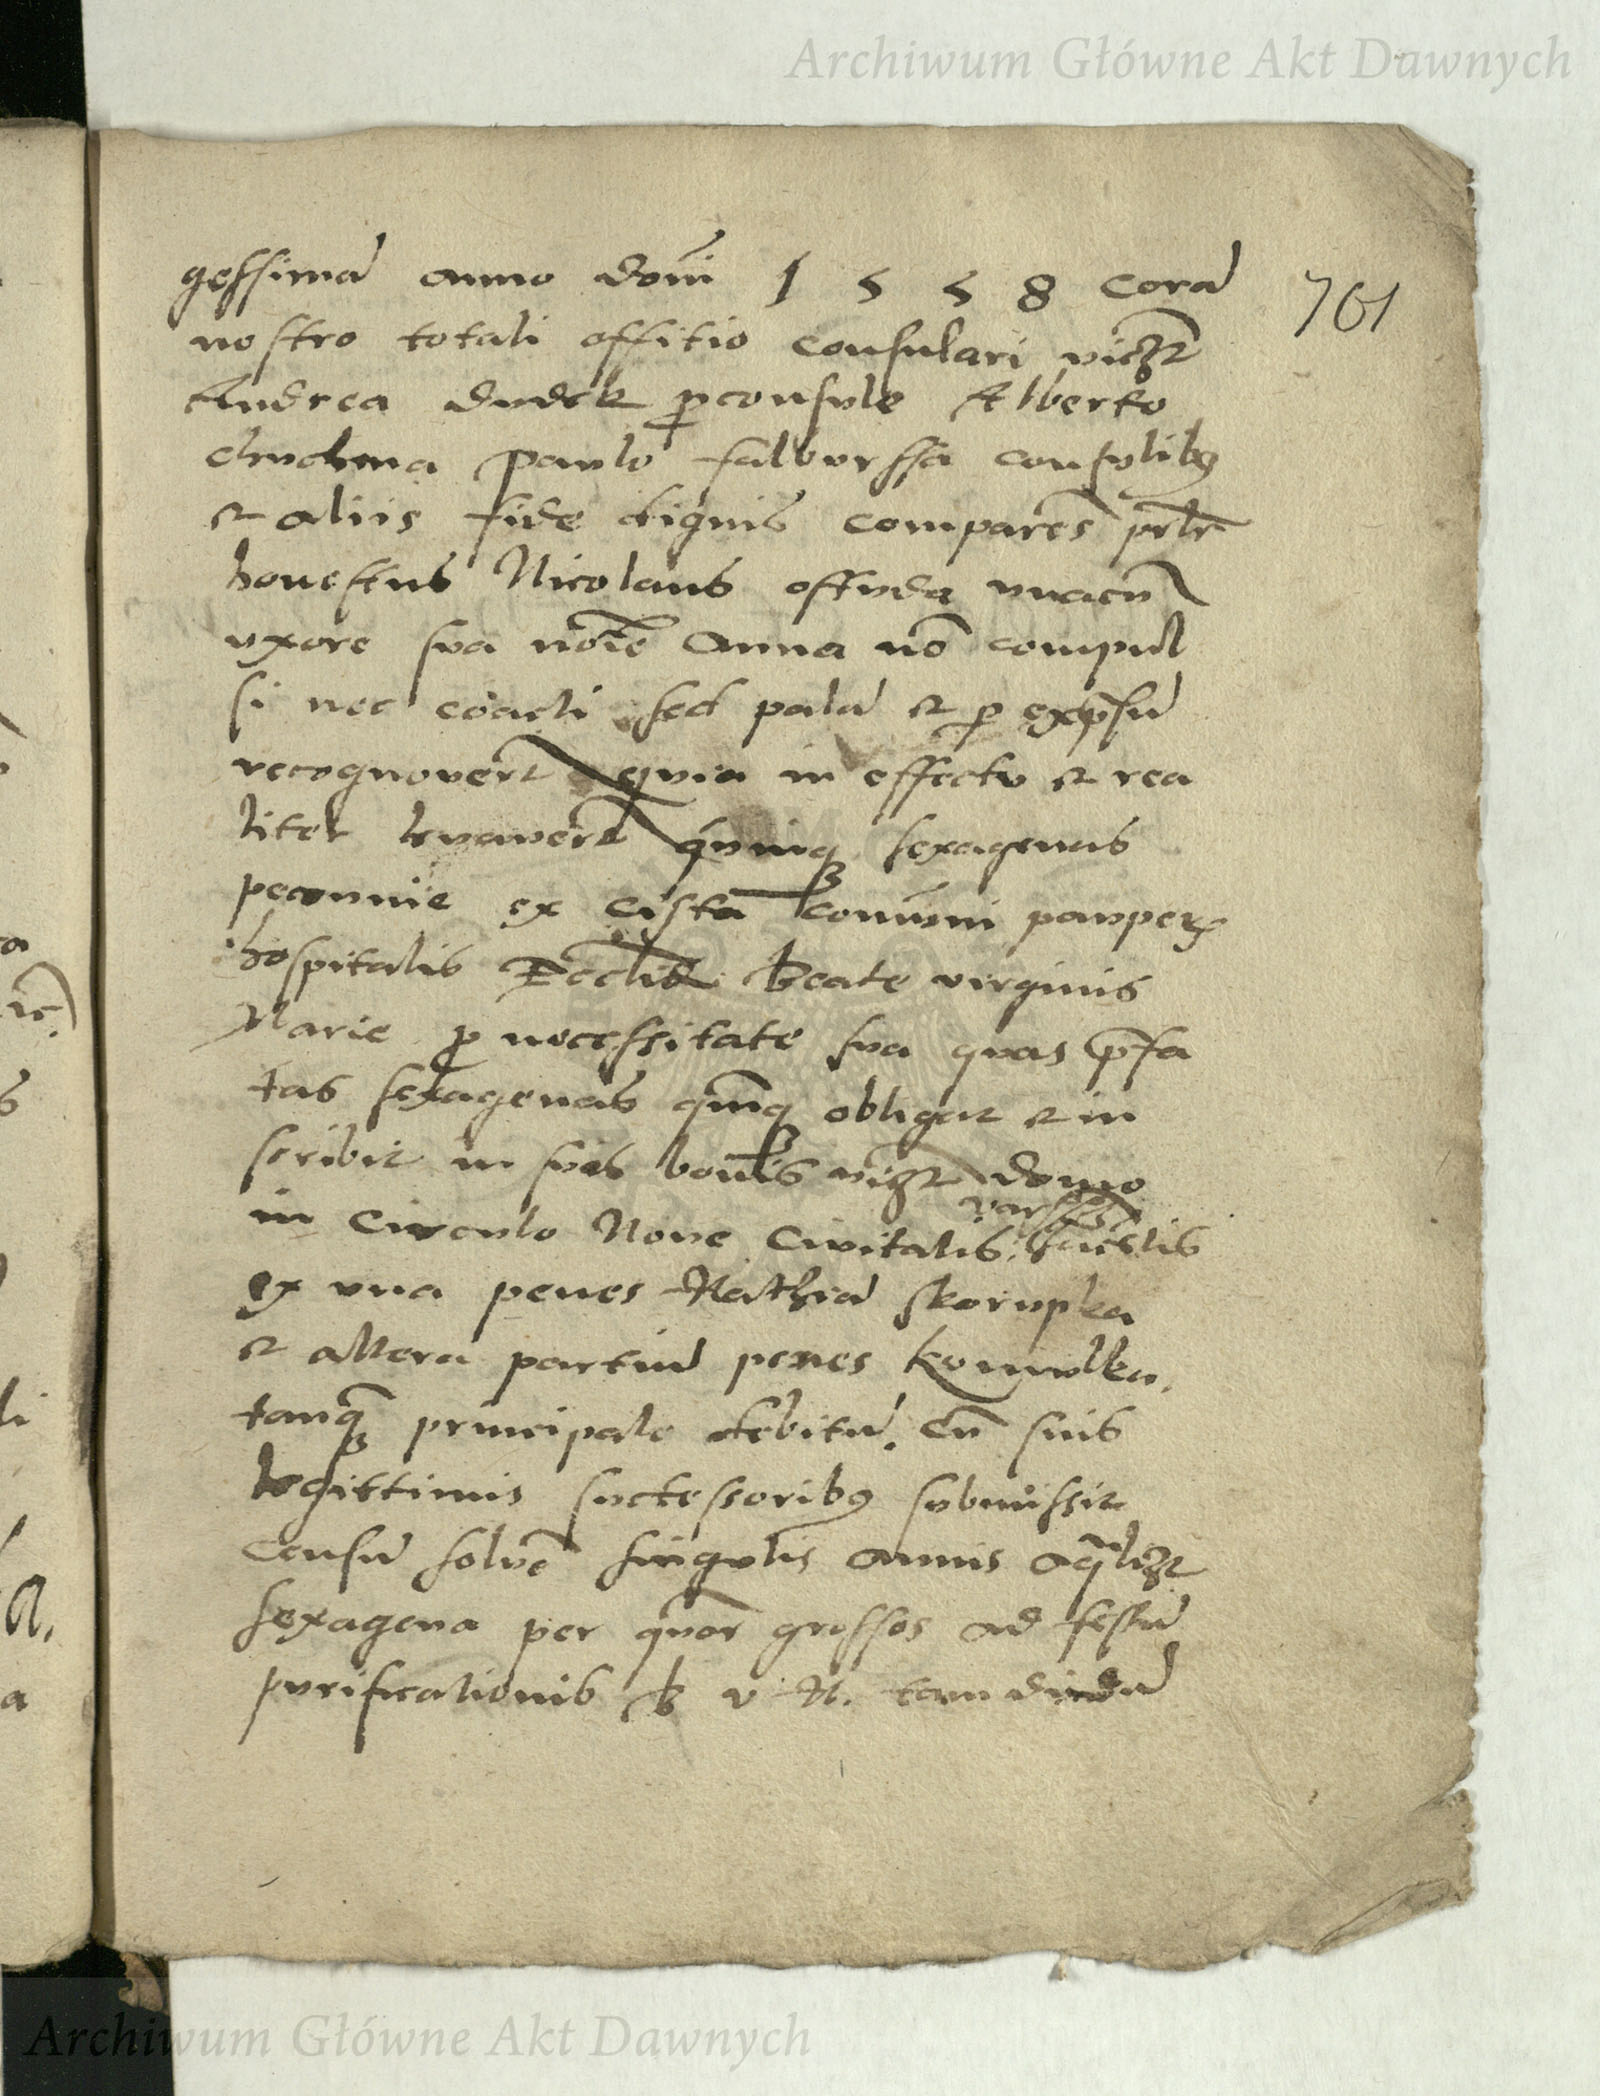 Archiwum Główne Akt Dawnych
gessimã anno dom̃i 1558 Corã
701
nostro totali offitio consulari vicꝫt
Andrea dudek ꝓconsule Alberto
chuchma paulo falburssa consulibꝰ
et aliis fide dignis comparẽs prlr̃
honestus Nicolaus ostuda vnacũ
vxore sua noĩe Anna nõ compul
si nec coacti sed palã et ꝑ exp̃ssũ
recognouerũt quia in effectu et rea
liter leuauerũt quinqꝫ sexagenas
pecunnie ex Cista com̃uni pauperꝝ
hospitalis Eccliẽ Beate virginis
Marie ꝓ necessitate sua quas p̃fa
tas sexagenas qũiqꝫ obligat et in
scribit in suis bonis vicꝫt domo
varssẽ
in Circulo Noue Ciuitatis
ex vna penes Mathiã skorupka
et altera partiũ penes komulka.
tanqꝫ principale debitũ. Cũ suis
legittimis suctessoribꝰ submissit
Censũ soluẽ singulis annis a qũlꝫt
sexagena per quor̃ grossos ad festũ
purificationis b v M. tam diudũ
Archiwum Główne Akt Dawnych